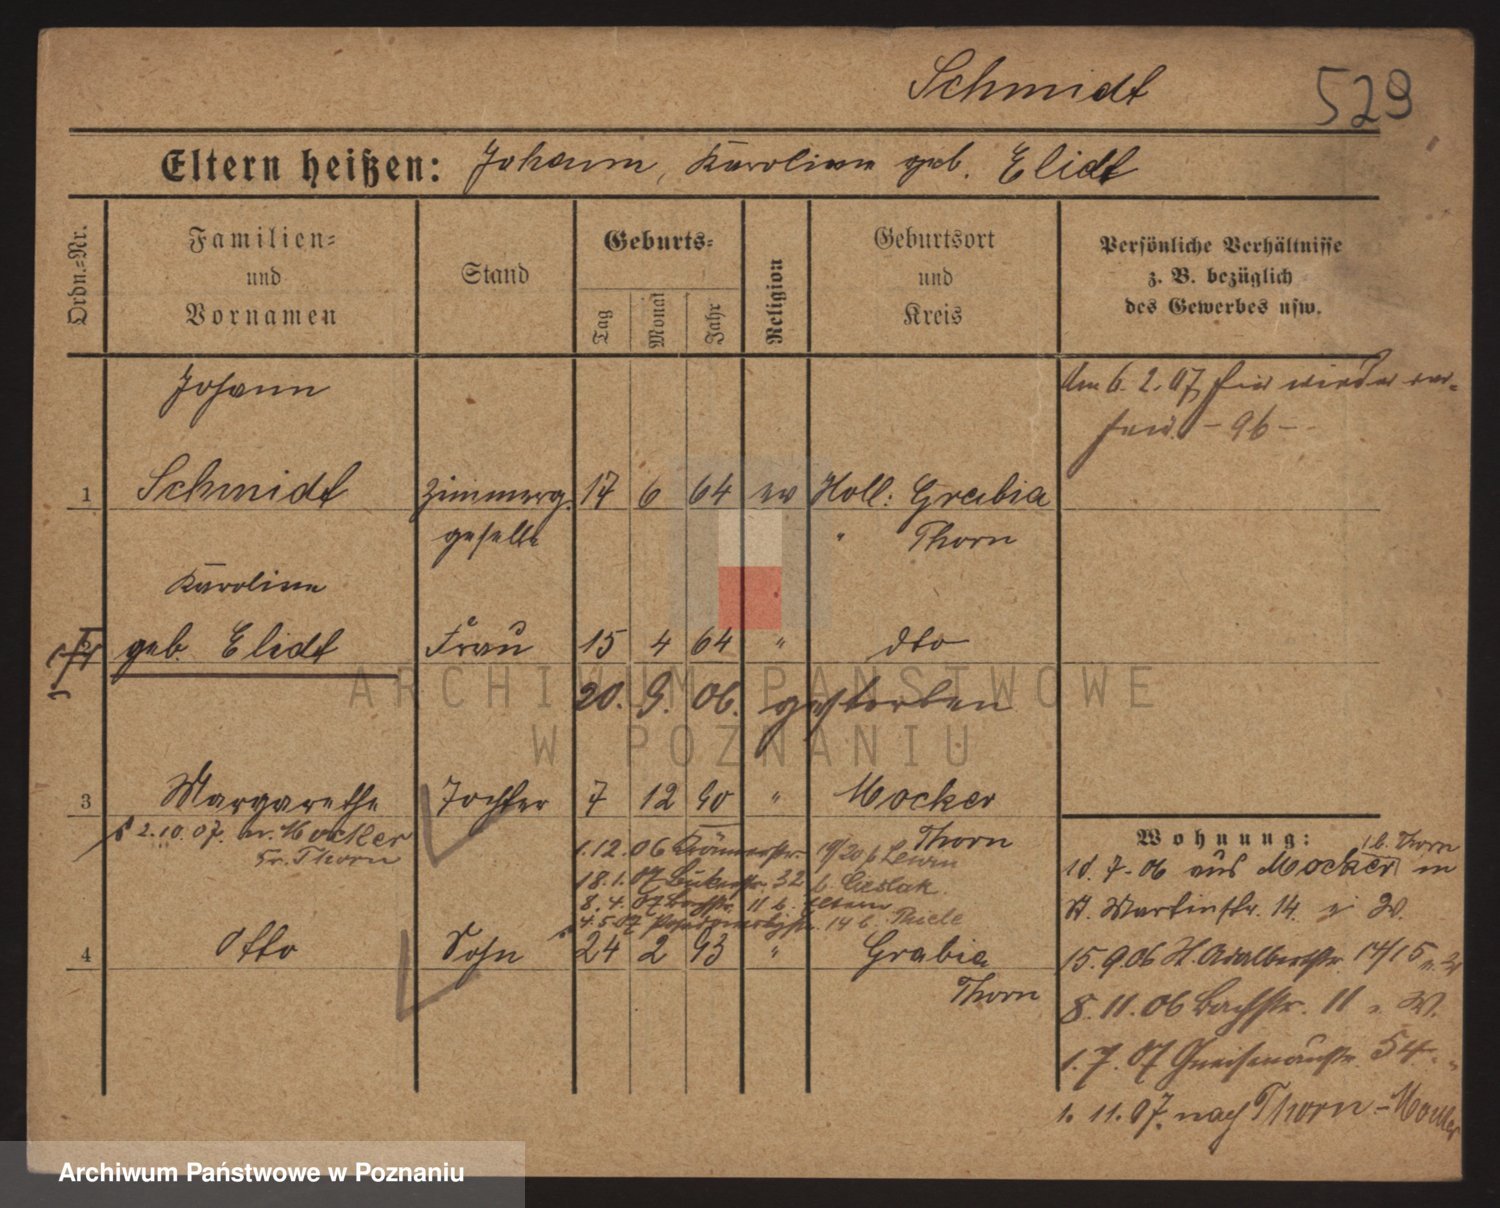 Schmidt 529
Eltern heißen: Johann, Karoline geb. Elidt
Ordn.-Nr.
Familien-
und
Vornamen
Stand
Geburts-
Tag
Monat
Jahr
Religion
Geburtsort
und
Kreis
Persönliche Verhältnisse
z. B. bezüglich
des Gewerbes usw.
Johann
1 Schmidt Zimmerg. 17 6 64 ev Holl: Grabia
geselle " Thorn
Am 6. 2. 07
- 96 -
Karoline
geb. Elidt Frau 15 4 64 " dto
20. 9. 06. gestorben
3 Margarethe Tochter 7 12 90 " Mocker
Thorn
2.10.07. n. Mocker
Kr. Thorn
1.12.06
18.1.07 32 b. Cieslak
8.4.07 11 b. Eltern
4.5.07 14 b. Thiele
4 Otto Sohn 24 2 93 " Grabia
Thorn
Wohnung:
b. Thorn
10. 7. 06 aus Mocker in
St. Martinstr. 14 i W.
15.9.06 St. Adalbertstr. 14/15
8. 11. 06 Bachstr. 11 W.
1. 7. 07 Gneisenaustr. 54
1. 11. 07. nach Thorn-Mocker
ARCHIWUM PAŃSTWOWE
W POZNANIU
Archiwum Państwowe w Poznaniu